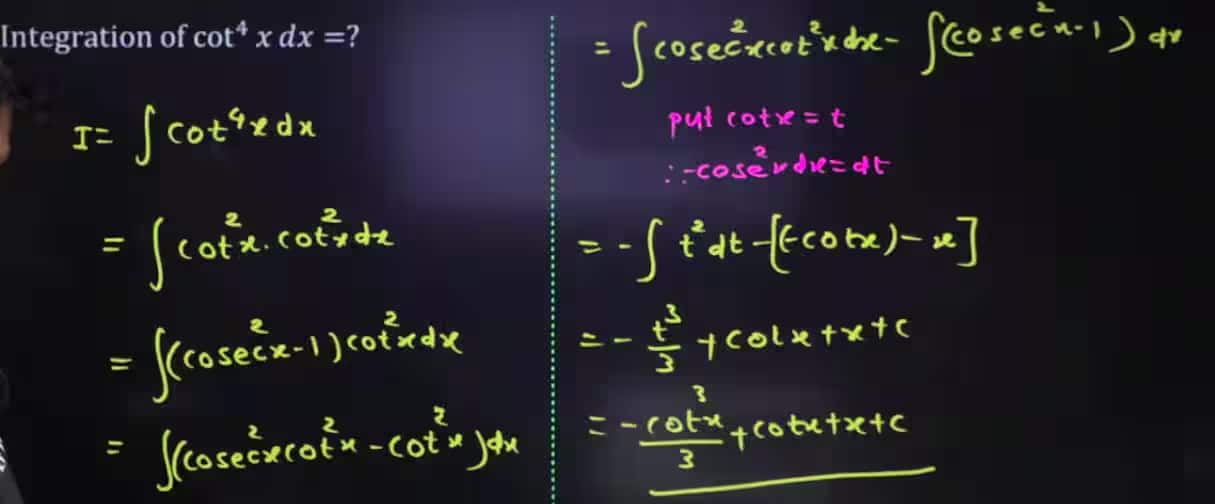 Integration of cot⁴ x dx =?
I= ∫cot⁴x dx
= ∫cot²x.cot²x dx
= ∫(cosec²x-1)cot²x dx
= ∫(cosec²x cot²x -cot²x)dx
= ∫cosec²x cot²x dx - ∫(cosec²x-1) dx
put cotx = t
∴ -cosec²x dx = dt
= -∫t²dt -[(-cotx)-x]
= - t³/3 + cotx + x + c
= - cot³x/3 + cotx + x + c